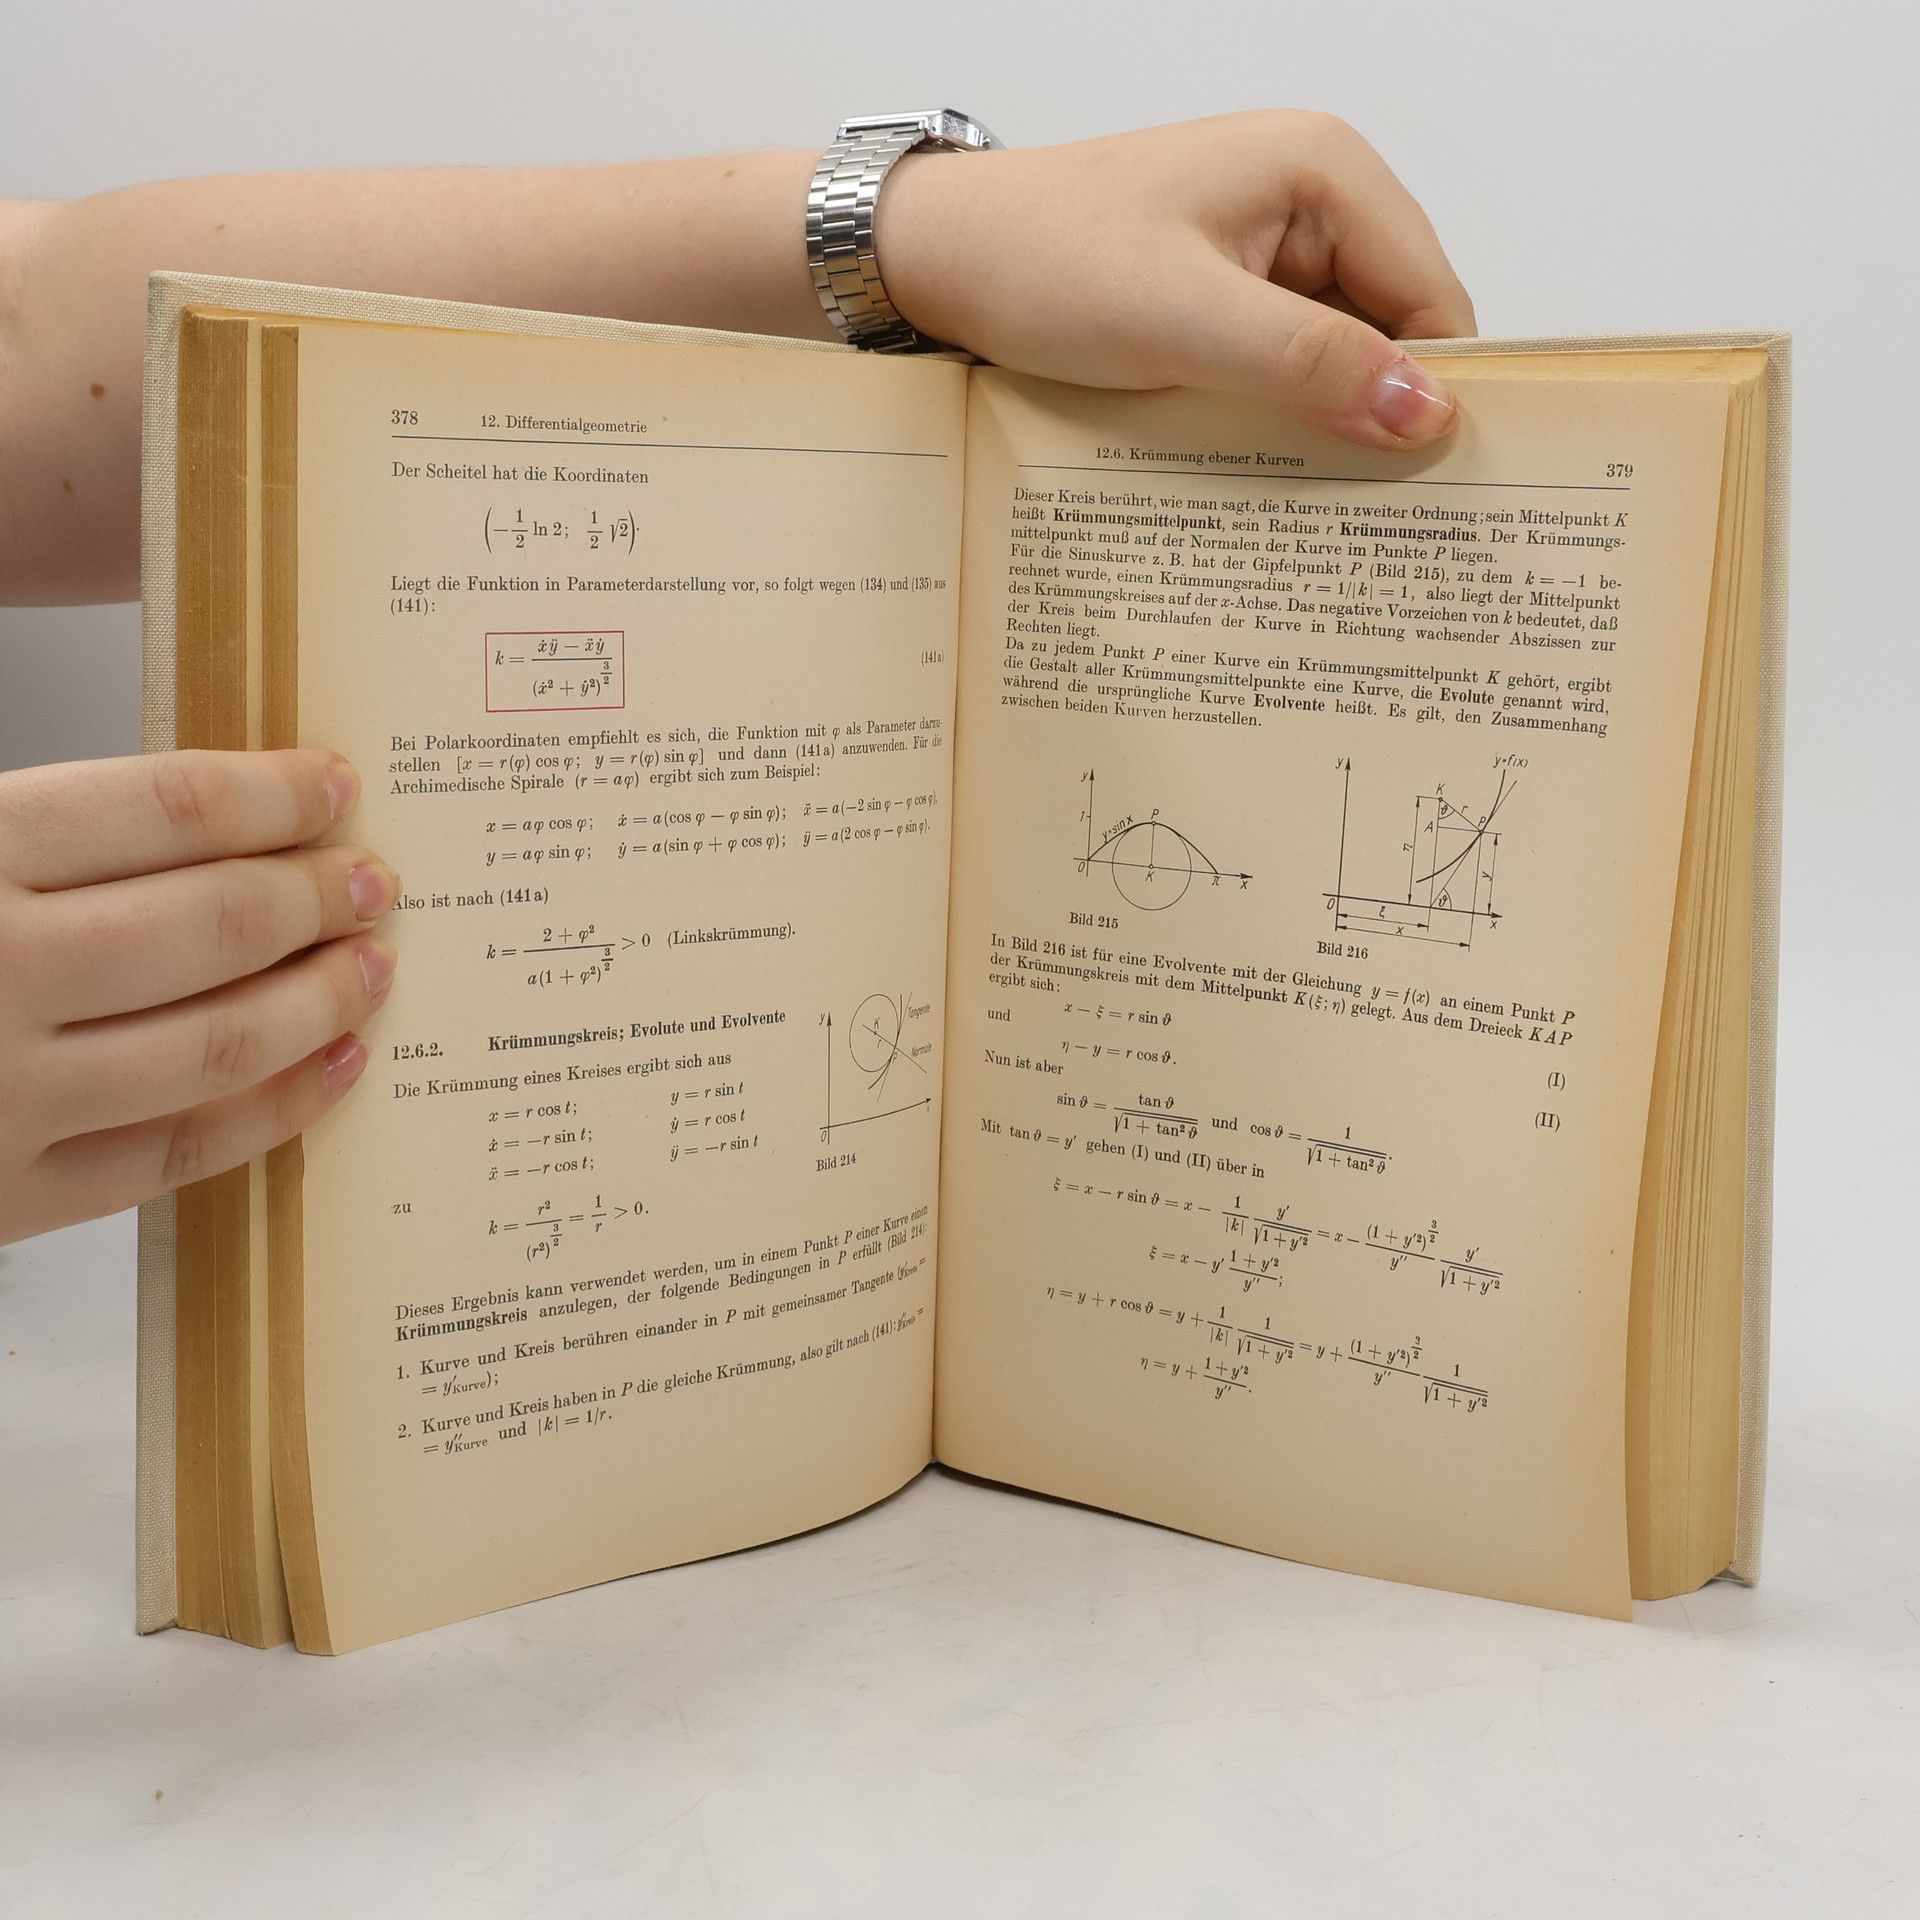 378 12. Differentialgeometrie
Der Scheitel hat die Koordinaten
(−1/2 ln 2; 1/2 √2).
Liegt die Funktion in Parameterdarstellung vor, so folgt wegen (134) und (135) aus
(141):
k = (ẋÿ − ẍẏ)/(ẋ² + ẏ²)^(3/2) (141a)
Bei Polarkoordinaten empfiehlt es sich, die Funktion mit φ als Parameter darzu-
stellen [x = r(φ) cos φ; y = r(φ) sin φ] und dann (141a) anzuwenden. Für die
Archimedische Spirale (r = aφ) ergibt sich zum Beispiel:
x = aφ cos φ; ẋ = a(cos φ − φ sin φ); ẍ = a(−2 sin φ − φ cos φ),
y = aφ sin φ; ẏ = a(sin φ + φ cos φ); ÿ = a(2 cos φ − φ sin φ).
Also ist nach (141a)
k = (2 + φ²)/(a(1 + φ²)^(3/2)) > 0 (Linkskrümmung).
12.6.2. Krümmungskreis; Evolute und Evolvente
Die Krümmung eines Kreises ergibt sich aus
x = r cos t; y = r sin t
ẋ = −r sin t; ẏ = r cos t
ẍ = −r cos t; ÿ = −r sin t
zu
k = r²/(r²)^(3/2) = 1/r > 0.
y K r P Tangente Normale 0
Bild 214
Dieses Ergebnis kann verwendet werden, um in einem Punkt P einer Kurve einen
Krümmungskreis anzulegen, der folgende Bedingungen in P erfüllt (Bild 214):
1. Kurve und Kreis berühren einander in P mit gemeinsamer Tangente (y′Kreis =
= y′Kurve);
2. Kurve und Kreis haben in P die gleiche Krümmung, also gilt nach (141): y″Kreis =
= y″Kurve und |k| = 1/r.
12.6. Krümmung ebener Kurven 379
Dieser Kreis berührt, wie man sagt, die Kurve in zweiter Ordnung; sein Mittelpunkt K
heißt Krümmungsmittelpunkt, sein Radius r Krümmungsradius. Der Krümmungs-
mittelpunkt muß auf der Normalen der Kurve im Punkte P liegen.
Für die Sinuskurve z. B. hat der Gipfelpunkt P (Bild 215), zu dem k = −1 be-
rechnet wurde, einen Krümmungsradius r = 1/|k| = 1, also liegt der Mittelpunkt
des Krümmungskreises auf der x-Achse. Das negative Vorzeichen von k bedeutet, daß
der Kreis beim Durchlaufen der Kurve in Richtung wachsender Abszissen zur
Rechten liegt.
Da zu jedem Punkt P einer Kurve ein Krümmungsmittelpunkt K gehört, ergibt
die Gestalt aller Krümmungsmittelpunkte eine Kurve, die Evolute genannt wird,
während die ursprüngliche Kurve Evolvente heißt. Es gilt, den Zusammenhang
zwischen beiden Kurven herzustellen.
y 1 y=sin x P 0 K π x
Bild 215
y y=f(x) K ϑ r A P η y 0 ξ ϑ x x
Bild 216
In Bild 216 ist für eine Evolvente mit der Gleichung y = f(x) an einem Punkt P
der Krümmungskreis mit dem Mittelpunkt K(ξ; η) gelegt. Aus dem Dreieck KAP
ergibt sich:
x − ξ = r sin ϑ (I)
und
η − y = r cos ϑ. (II)
Nun ist aber
sin ϑ = tan ϑ/√(1 + tan² ϑ) und cos ϑ = 1/√(1 + tan² ϑ).
Mit tan ϑ = y′ gehen (I) und (II) über in
ξ = x − r sin ϑ = x − 1/|k| y′/√(1 + y′²) = x − (1 + y′²)^(3/2)/y″ y′/√(1 + y′²)
ξ = x − y′ (1 + y′²)/y″;
η = y + r cos ϑ = y + 1/|k| 1/√(1 + y′²) = y + (1 + y′²)^(3/2)/y″ 1/√(1 + y′²)
η = y + (1 + y′²)/y″.